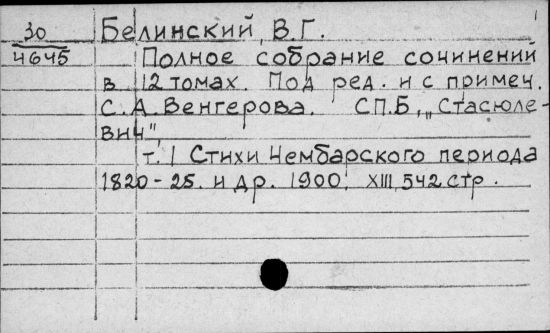 30
4645
Белинский, В.Г.
Полное собрание сочинений
в 12 томах. Под ред. и с примеч.
С.А. Венгерова. СПБ, „Стасюле-
вич"
т. 1 Стихи Чембарского периода
1820-25. и др. 1900, XIII, 542 стр.